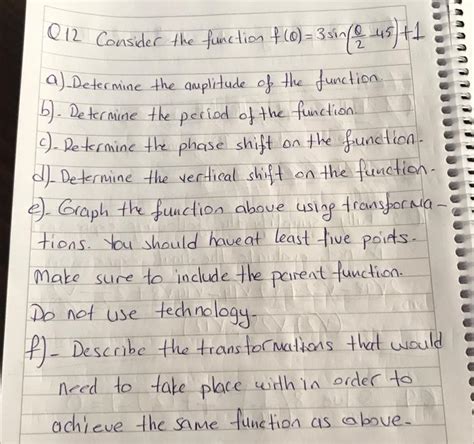 Q12 Consider the function f(θ)=3sin(θ/2 -45)+1
a)-Determine the amplitude of the function.
b)- Determine the period of the function
c)- Determine the phase shift on the function.
d)- Determine the vertical shift on the function.
e)- Graph the function above using transforma-
tions. You should have at least five points.
Make sure to include the parent function.
Do not use technology-
f)- Describe the transformations that would
need to take place with in order to
achieve the same function as above-